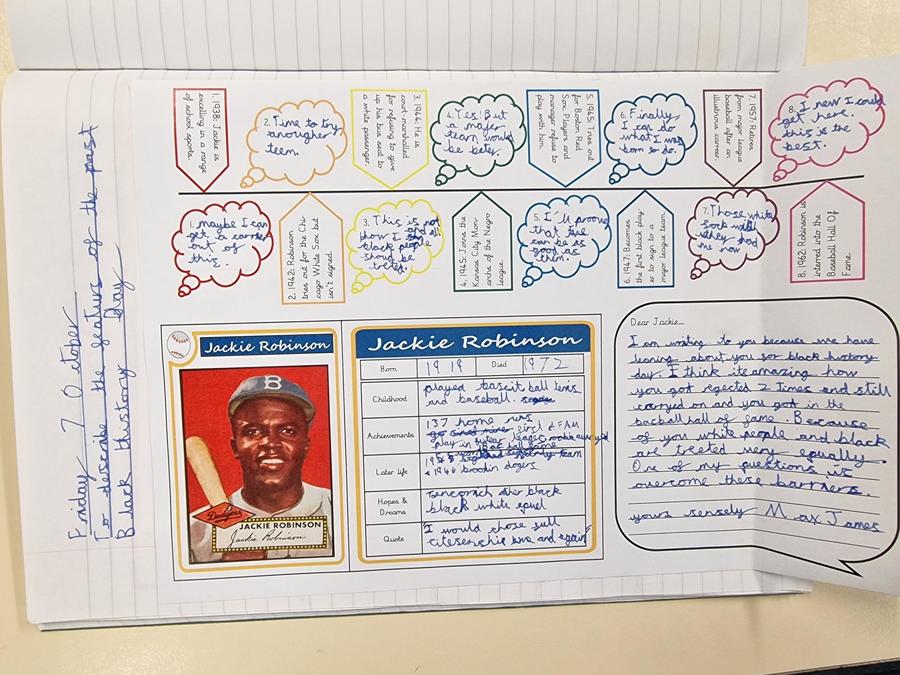 Friday 7 October
To describe the features of the past
Black history day
1. 1938: Jackie is
excelling in a range
of school sports.
2. Time to try
anougher
teem.
3. 1944: He is
court-martialled
for refusing to give
up his bus seat to
a white passenger.
4. Yes! But
a major
team would
be betey.
5. 1945: Tries out
for Boston Red
Sox. Players and
manager refuse to
play with him.
6. Finally
I can do
what I was
born to do.
7. 1957: Retires
from major league
baseball after an
illustrious career.
8. I new I could
get here.
this is the
best.
1. maybe I can
get a carrer
out of
this.
2. 1942: Robinson
tries out for the Chi-
cago White Sox but
isn't signed.
3. This is not
how I and all
black people
should be
tretey.
4. 1945: Joins the
Kansas City Mon-
archs of the Negro
league.
5. I'll proove
that
can be as
good as
them.
6. 1947: Becomes
the first black play-
er to sign to a
major league team.
7. Those white
Sock will
wish they had
me now
8. 1962: Robinson is
interred into the
Baseball Hall Of
Fame.
Jackie Robinson
B
Dodgers
JACKIE ROBINSON
Jackie Robinson
Jackie Robinson
Born 1919 Died 1972
Childhood
played bascit ball tenis
and baseball.
Achievements
137 home runs
Later life
1946
Hopes &
Dreams
black white
Quote
I would chose full
citesenship and again
Dear Jackie...
I am writing to you because we have
leaning about you for black history
day. I think its amazing how
you got regected 2 times and still
carryed on and you got in the
bacball hall of fame. Because
of you white people and black
are treeted very equally.
One of my questions is
overcome these barriers.
yours sensely Max James